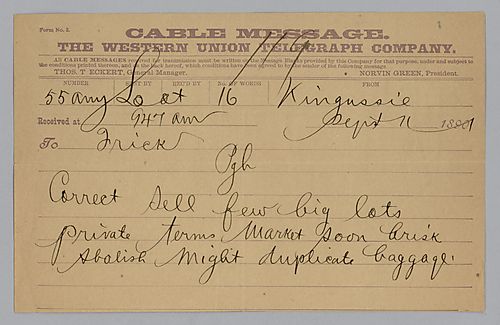 Form No. 2.
CABLE MESSAGE.
THE WESTERN UNION TELEGRAPH COMPANY.
All CABLE MESSAGES received for transmission must be written on the Message Blanks provided by this Company for that purpose, under and subject to
the conditions printed thereon, and on the back hereof, which conditions have been agreed to by the sender of the following message.
THOS. T. ECKERT, General Manager. NORVIN GREEN, President.
NUMBER SENT BY REC'D BY No. OF WORDS FROM
55 any 16 Kingussie
Received at 947 am Sept 11 1891
To Frick
Pgh
Correct sell few big lots
private terms Market soon brisk
Abolish Might duplicate baggage.